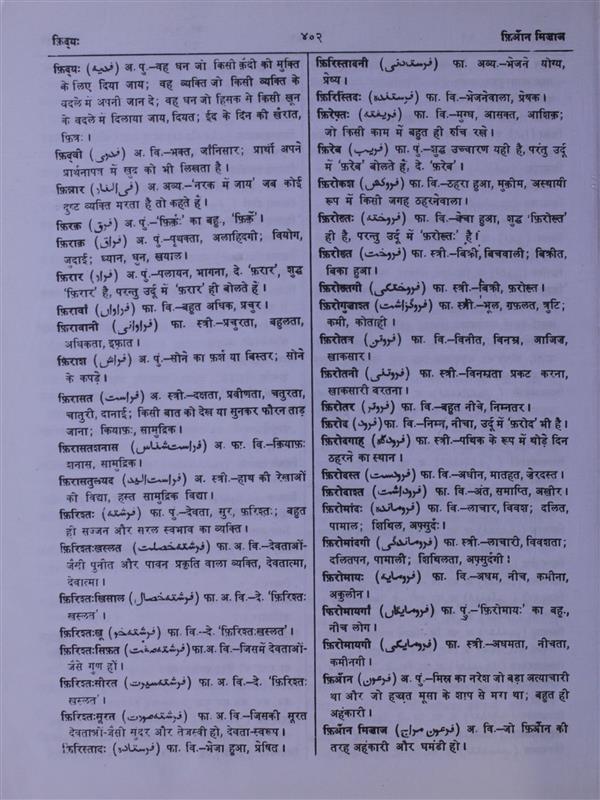 फ़िद्यः
४०२
फ़िर्औन मिज़ाज
फ़िद्यः (فدیہ) अ. पु.–वह धन जो किसी क़ैदी की मुक्ति
के लिए दिया जाय; वह व्यक्ति जो किसी व्यक्ति के
बदले में अपनी जान दे; वह धन जो हिंसक से किसी खून
के बदले में दिलाया जाय, दियत; ईद के दिन की ख़ैरात,
फ़ित्रः।
फ़िद्वी (فدوی) अ. वि.–भक्त, जाँनिसार; प्रार्थी अपने
प्रार्थनापत्र में खुद को भी लिखता है।
फ़िन्नार (فی النار) अ. अव्य.–'नरक में जाय' जब कोई
दुष्ट व्यक्ति मरता है तो कहते हैं।
फ़िरक़ (فرق) अ. पुं.–'फ़िर्क़ः' का बहु., 'फ़िर्क़े'।
फ़िराक़ (فراق) अ. पुं.–पृथक्ता, अलाहिदगी; वियोग,
जुदाई; ध्यान, धुन, ख़याल।
फ़िरार (فرار) अ. पुं.–पलायन, भागना, दे. 'फ़रार', शुद्ध
'फ़िरार' है, परन्तु उर्दू में 'फ़रार' ही बोलते हैं।
फ़िरावाँ (فراواں) फा. वि.–बहुत अधिक, प्रचुर।
फ़िरावानी (فراوانی) फा. स्त्री.–प्रचुरता, बहुलता,
अधिकता, इफ़्रात।
फ़िराश (فراش) अ. पुं.–सोने का फ़र्श या बिस्तर; सोने
के कपड़े।
फ़िरासत (فراست) अ. स्त्री.–दक्षता, प्रवीणता, चतुरता,
चातुरी, दानाई; किसी बात को देख या सुनकर फौरन ताड़
जाना; क़ियाफ़ः, सामुद्रिक।
फ़िरासतशनास (فراست شناس) अ. फा. वि.–क़ियाफ़ः
शनास, सामुद्रिक।
फ़िरासतुलयद (فراست الید) अ. स्त्री.–हाथ की रेखाओं
की विद्या, हस्त सामुद्रिक विद्या।
फ़िरिश्तः (فرشتہ) फा. पुं.–देवता, सुर, फ़रिश्तः; बहुत
ही सज्जन और सरल स्वभाव का व्यक्ति।
फ़िरिश्तःख़स्लत (فرشتہ خصلت) फा. अ. वि.–देवताओं-
जैसी पुनीत और पावन प्रकृति वाला व्यक्ति, देवतात्मा,
देवात्मा।
फ़िरिश्तःख़िसाल (فرشتہ خصال) फा. अ. वि.–दे. 'फ़िरिश्तः
ख़स्लत'।
फ़िरिश्तःख़ू (فرشتہ خو) फा. वि.–दे. 'फ़िरिश्तःख़स्लत'।
फ़िरिश्तःसिफ़त (فرشتہ صفت) फा. अ. वि.–जिसमें देवताओं-
जैसे गुण हों।
फ़िरिश्तःसीरत (فرشتہ سیرت) फा. अ. वि.–दे. 'फ़िरिश्तः
ख़स्लत'।
फ़िरिश्तःसूरत (فرشتہ صورت) फा. अ. वि.–जिसकी सूरत
देवताओं-जैसी सुंदर और तेजस्वी हो, देवता-स्वरूप।
फ़िरिस्तादः (فرستادہ) फा. वि.–भेजा हुआ, प्रेषित।
फ़िरिस्तादनी (فرستادنی) फा. अव्य.–भेजने योग्य,
प्रेष्य।
फ़िरिस्तिंदः (فرستندہ) फा. वि.–भेजनेवाला, प्रेषक।
फ़िरेफ़्तः (فریفتہ) फा. वि.–मुग्ध, आसक्त, आशिक़;
जो किसी काम में बहुत ही रुचि रखे।
फ़िरेब (فریب) फा. पुं.–शुद्ध उच्चारण यही है, परंतु उर्दू
में 'फ़रेब' बोलते हैं, दे. 'फ़रेब'।
फ़िरोकश (فروکش) फा. वि.–ठहरा हुआ, मुक़ीम, अस्थायी
रूप में किसी जगह ठहरनेवाला।
फ़िरोख़्तः (فروختہ) फा. वि.–बेचा हुआ, शुद्ध 'फ़िरोख़्त'
ही है, परन्तु उर्दू में 'फ़रोख़्तः' है।
फ़िरोख़्त (فروخت) फा. स्त्री.–बिक्री, बिचवाली; बिक्रीत,
बिका हुआ।
फ़िरोख़्तगी (فروختگی) फा. स्त्री.–बिक्री, फ़रोख़्त।
फ़िरोगुज़ाश्त (فروگزاشت) फा. स्त्री.–भूल, ग़फ़लत, त्रुटि;
कमी, कोताही।
फ़िरोतन (فروتن) फा. वि.–विनीत, विनम्र, आजिज़,
खाकसार।
फ़िरोतनी (فروتنی) फा. स्त्री.–विनम्रता प्रकट करना,
खाकसारी बरतना।
फ़िरोतर (فروتر) फा. वि.–बहुत नीचे, निम्नतर।
फ़िरोद (فرود) फा. वि.–निम्न, नीचा, उर्दू में 'फ़रोद' भी है।
फ़िरोदगाह (فرودگاہ) फा. स्त्री.–पथिक के रूप में थोड़े दिन
ठहरने का स्थान।
फ़िरोदस्त (فرودست) फा. वि.–अधीन, मातहत, ज़ेरदस्त।
फ़िरोदाश्त (فروداشت) फा. वि.–अंत, समाप्ति, अख़ीर।
फ़िरोमांदः (فروماندہ) फा. वि.–लाचार, विवश; दलित,
पामाल; शिथिल, अफ़्सुर्दः।
फ़िरोमांदगी (فروماندگی) फा. स्त्री.–लाचारी, विवशता;
दलितपन, पामाली; शिथिलता, अफ़्सुर्दगी।
फ़िरोमायः (فرومایہ) फा. वि.–अधम, नीच, कमीना,
अकुलीन।
फ़िरोमायगाँ (فرومایگاں) फा. पुं.–'फ़िरोमायः' का बहु.,
नीच लोग।
फ़िरोमायगी (فرومایگی) फा. स्त्री.–अधमता, नीचता,
कमीनगी।
फ़िर्औन (فرعون) अ. पुं.–मिस्र का नरेश जो बड़ा अत्याचारी
था और जो हज्रत मूसा के शाप से मरा था; बहुत ही
अहंकारी।
फ़िर्औन मिज़ाज (فرعون مزاج) अ. वि.–जो फ़िर्औन की
तरह अहंकारी और घमंडी हो।